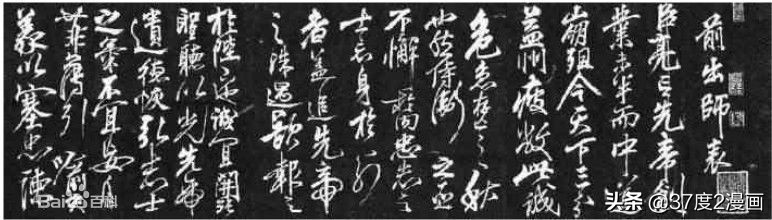 前出師表
臣亮言先帝創
業未半而中道
崩殂今天下三分
益州疲敝此誠
危急存亡之秋
也然侍衛之臣
不懈於內忠志之
士忘身於外
者蓋追先帝
之殊遇欲報之
於陛下誠宜開張
聖聽以光先帝
遺德恢弘志士
之氣不宜妄自
菲薄引喻失
義以塞忠諫
Baidu百科
头条 @37度2漫画